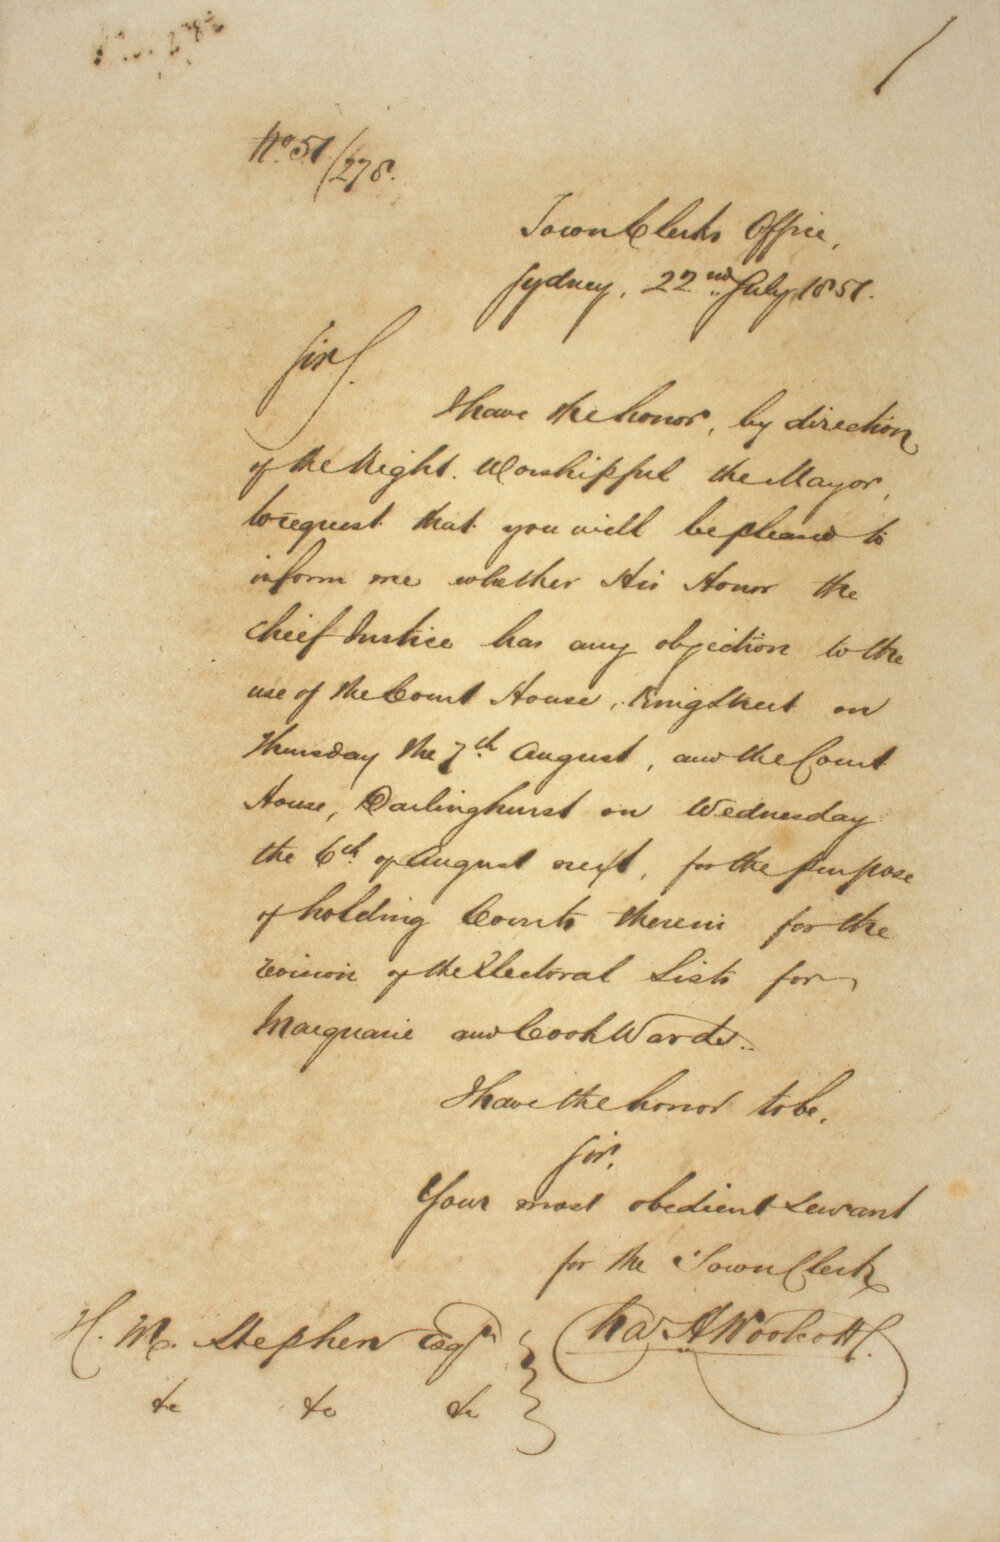 No 51/278.
Town Clerks Office,
Sydney, 22nd July 1851.
Sir,
I have the honor, by direction
of the Right Worshipful the Mayor,
to request that you will be pleased to
inform me whether His Honor the
Chief Justice has any objection to the
use of the Court House, King Street on
Thursday the 7th August, and the Court
House, Darlinghurst on Wednesday
the 6th of August next, for the purpose
of holding Courts therein for the
revision of the Electoral Lists for
Macquarie and Cook Wards.
I have the honor to be,
Sir,
Your most obedient Servant
for the Town Clerk
Chas H Woolcott
H. M. Stephen Esqr
&c &c &c